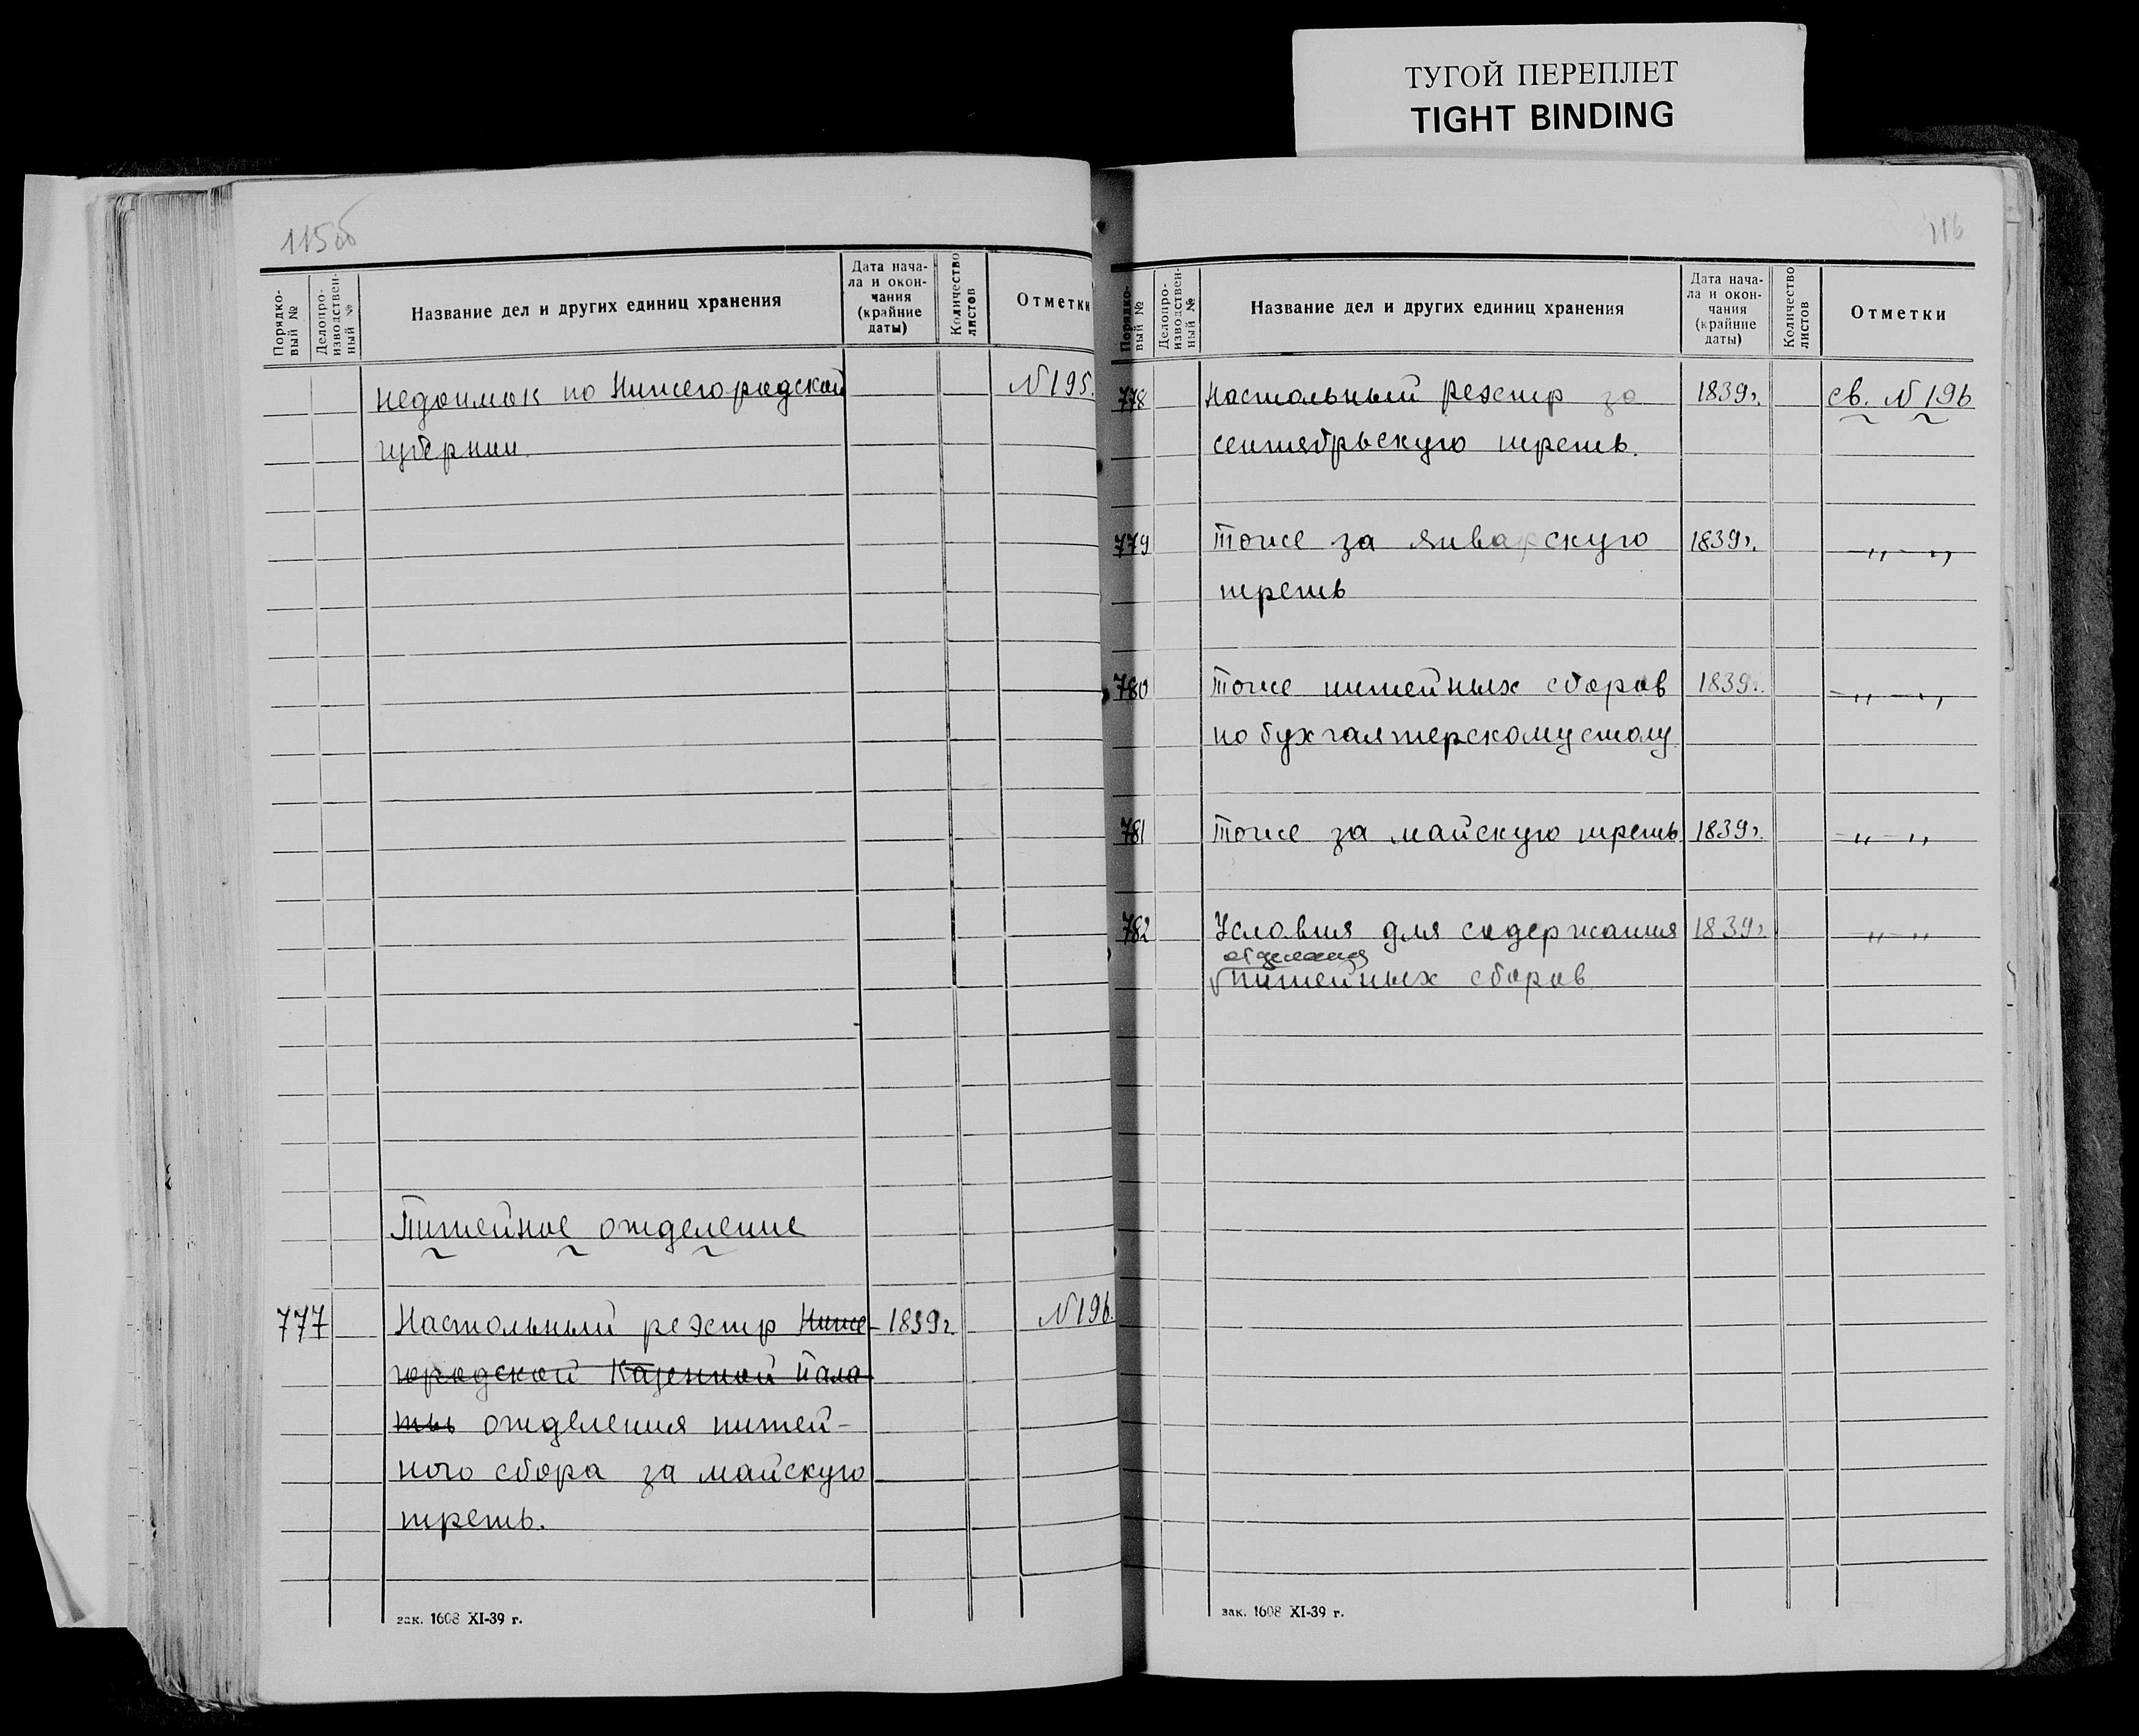 ТУГОЙ ПЕРЕПЛЕТ
TIGHT BINDING
115об
Порядко-
вый №
Делопро-
изводствен-
ный №
Название дел и других единиц хранения
Дата нача-
ла и окон-
чания
(крайние
даты)
Количество
листов
Отметки
недоимок по Нижегородской N 195.
губернии.
Питейное отделение
777 Настольный реэстр Ниже- 1839г. N 196.
городской Казенной Пала-
ты отделения питей-
ного сбора за майскую
треть.
зак. 1608 XI-39 г.
116
Порядко-
вый №
Делопро-
изводствен-
ный №
Название дел и других единиц хранения
Дата нача-
ла и окон-
чания
(крайние
даты)
Количество
листов
Отметки
778 Настольный реэстр за 1839г. св. N 196
сентябрьскую треть.
779 Тоже за январскую 1839г. —„—„
треть
780 Тоже питейных сборов 1839г. —„—„
по бухгалтерскому столу.
781 Тоже за майскую треть. 1839г. —„—„
782 Условия для содержания 1839г. —„—„
отделения
√питейных сборов.
зак. 1608 XI-39 г.